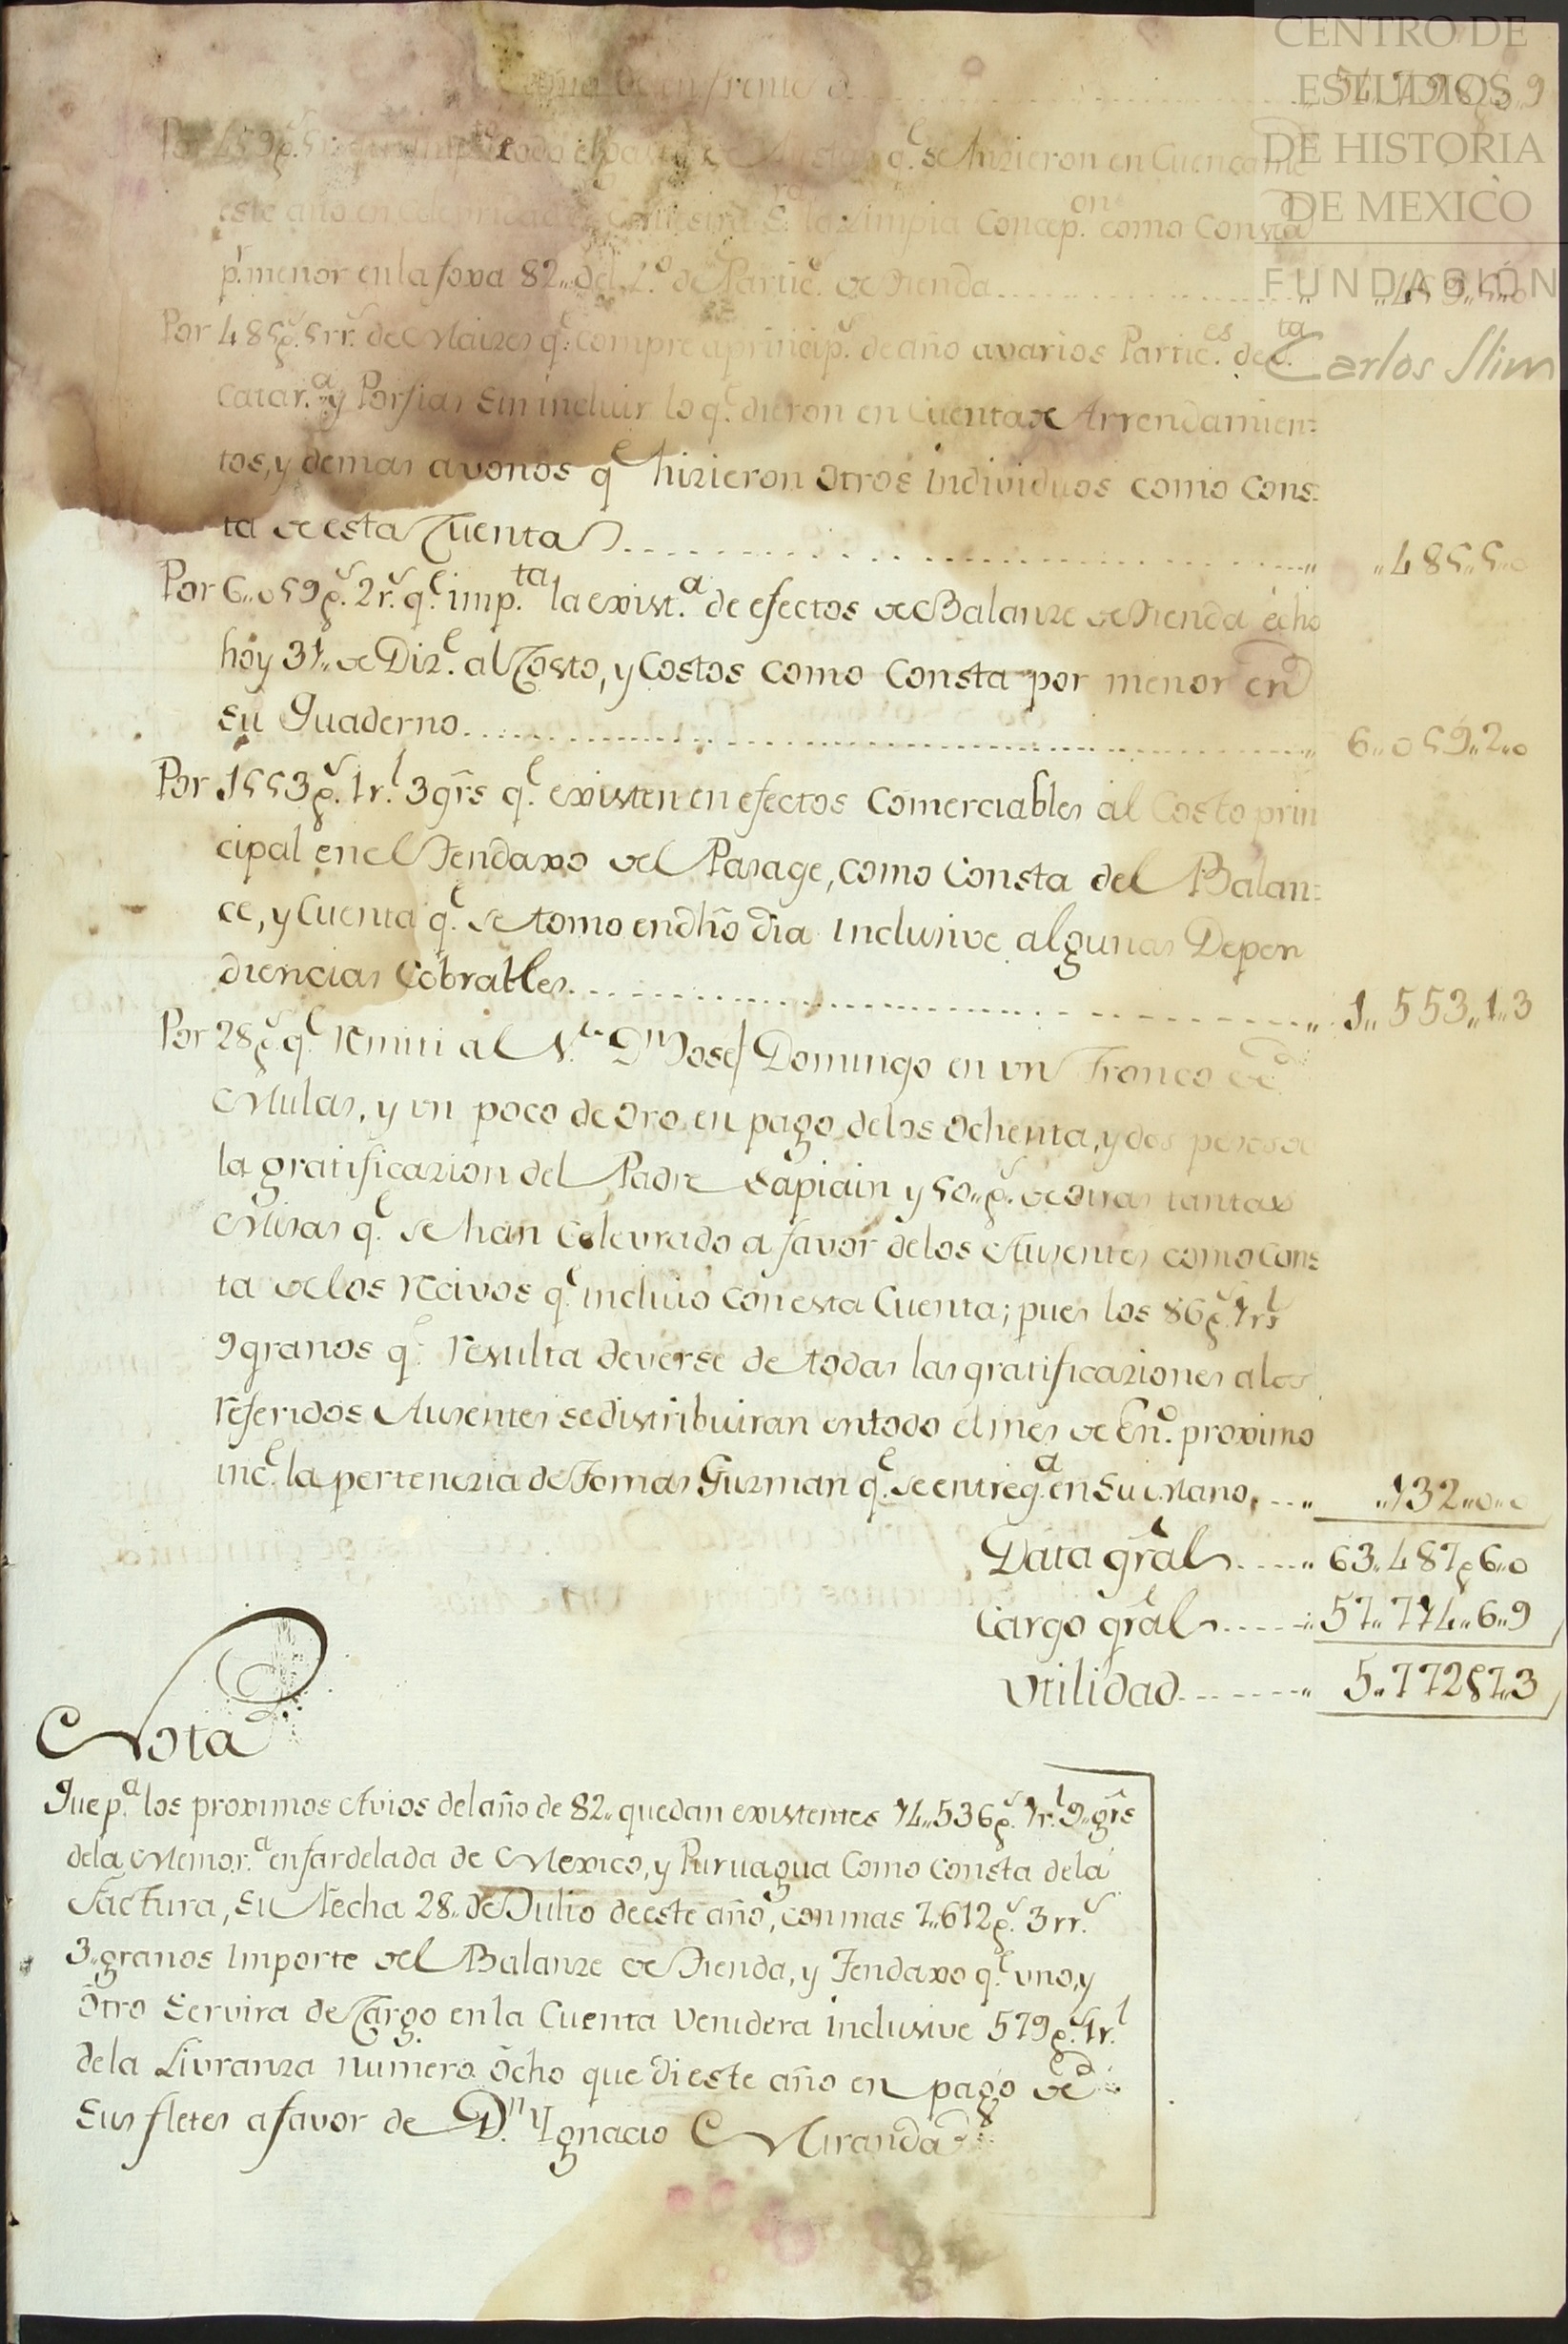 CENTRO DE
ESTUDIOS
DE HISTORIA
DE MEXICO
FUNDACIÓN
Carlos Slim
en frente
q.e se hizieron en Cuencame
este año en la Limpia Concep.on como Consta
p.r menor en la foxa 82,, del L.o de Partic.s de Tienda
Por 485p.s 5rr.s de Maizes q.e compre a princip.s de año a varios Partic.es de S.ta
Catar.a y Porfias sin incluir lo q.e dieron en Cuenta de Arrendamien=
tos, y demas avonos q.e hizieron otros individuos como Cons=
ta de esta Cuenta ,,485,,5,,0
Por 6,,059p.s 2r.s q.e imp.ta la exist.a de efectos de Balanze de Tienda echo
hoy 31,, de Diz.e al Costo, y Costos como Consta por menor en
su Quaderno 6,,059,,2,,0
Por 1553p.s 1r.l 3grs q.e existen en efectos Comerciables al Costo prin
cipal en el Tendaxo del Pasage, como Consta del Balan=
ce, y Cuenta q.e se tomo en dho dia inclusive algunas Depen
diencias Cobrables 1,,553,,1,,3
Por 28p.s q.e remiti al S.or D.n Josef Domingo en un Tronco de
Mulas, y un poco de oro en pago de los ochenta, y dos pesos de
la gratificazion del Padre Sapiain y 50,,p.s de otras tantas
Misas q.e se han Celevrado a favor de los Ausentes como cons
ta de los recivos q.e incluio con esta Cuenta; pues los 86p.s 1r.l
9 granos q.e resulta deverse de todas las gratificaziones a los
referidos Ausentes se distribuiran en todo el mes de En.o proximo
inc.e la pertenezia de Tomas Guzman q.e se entreg.a en su Mano. ,,132,,0,,0
Data gral 63,,487p6,,0
Cargo gral 57,,714,,6,,9
Utilidad 5,,772p7,,3
Nota
Que p.a los proximos Avios del año de 82,, quedan existentes 14,,536p.s 1r.l 9,,grs
dela Memor.a enfardelada de Mexico, y Puruagua Como consta dela
Factura, su fecha 28,, de Julio de este año, con mas 7,,612p.s 3rr.s
3,,granos importe del Balanze de Tienda, y Tendaxo q.e uno, y
otro servira de Cargo en la Cuenta Venidera inclusive 579p.s 1r.l
dela Livranza numero ocho que di este año en pago de
sus fletes a favor de D.n Ygnacio Miranda